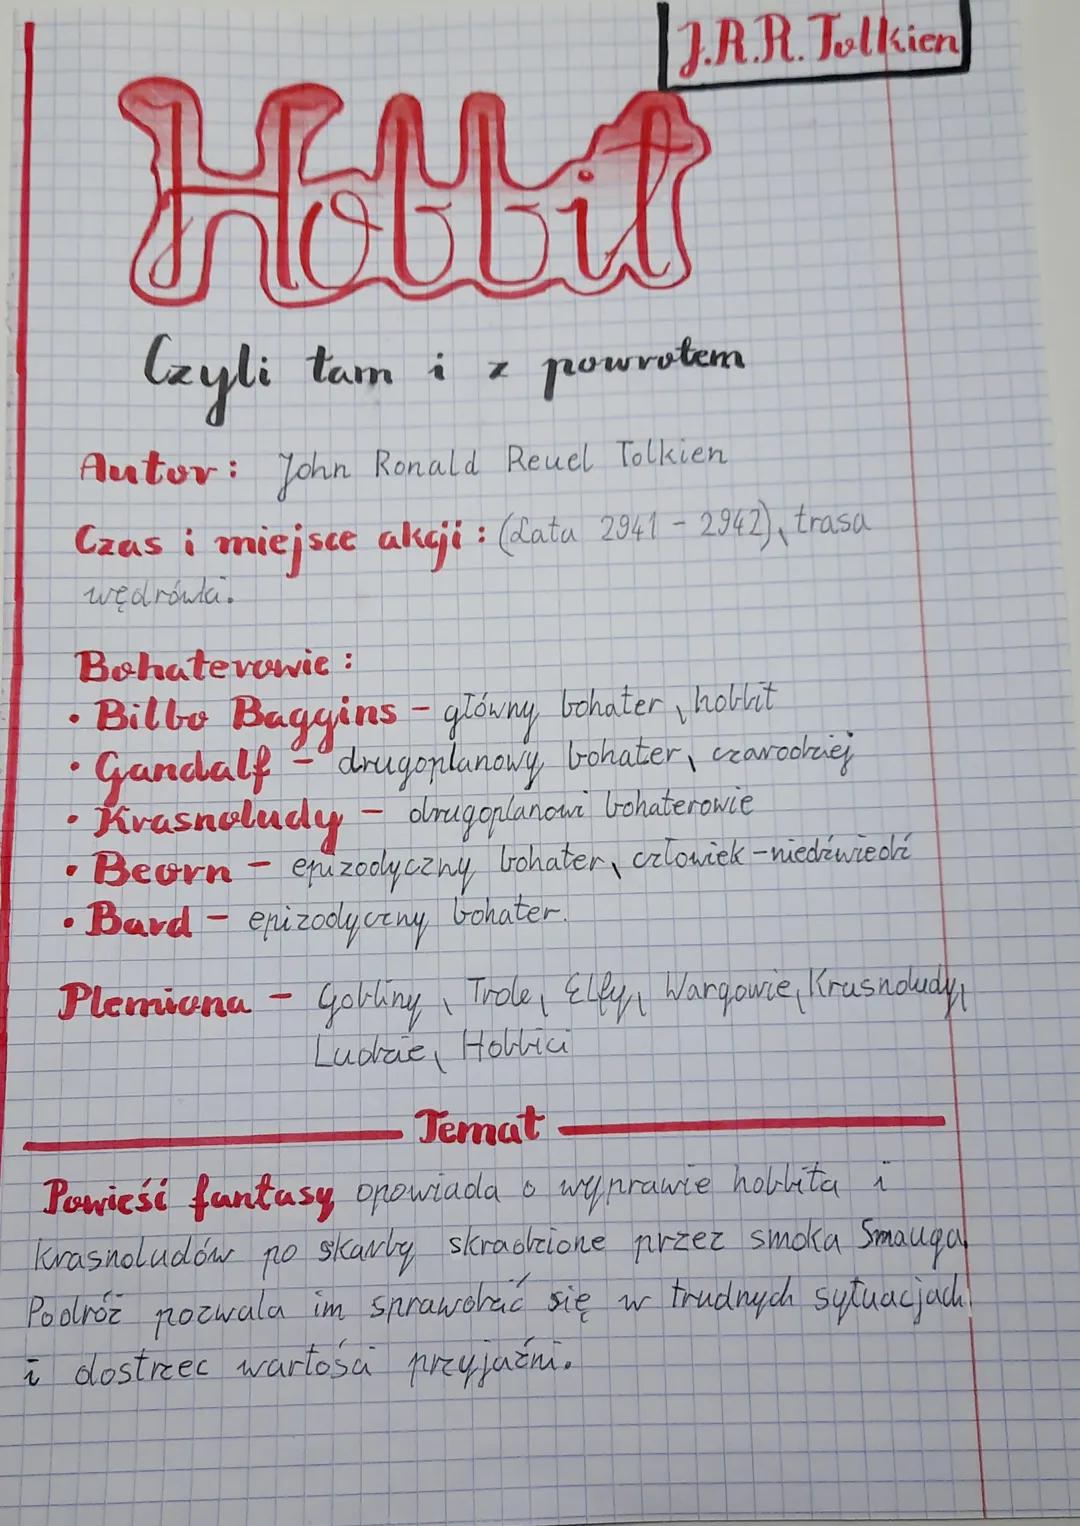 J.R.R. Tolkien
Hobbit
Czyli tam i z powrotem
Autor: John Ronald Reuel Tolkien
Czas i miejsce akcji: (Lata 2941 - 2942), trasa
wędrówki.
Bohaterowie:
• Bilbo Baggins - główny bohater, hobbit
• Gandalf - drugoplanowy bohater, czarodziej
• Krasnoludy - drugoplanowi bohaterowie
• Beorn - epizodyczny bohater, człowiek-niedźwiedź
• Bard - epizodyczny bohater.
Plemiona - Gobliny, Trole, Elfy, Wargowie, Krasnoludy,
Ludzie, Hobbici
Temat
Powieść fantasy opowiada o wyprawie hobbita i
krasnoludów po skarby skradzione przez smoka Smauga.
Podróż pozwala im sprawdzić się w trudnych sytuacjach
i dostrzec wartości przyjaźni.